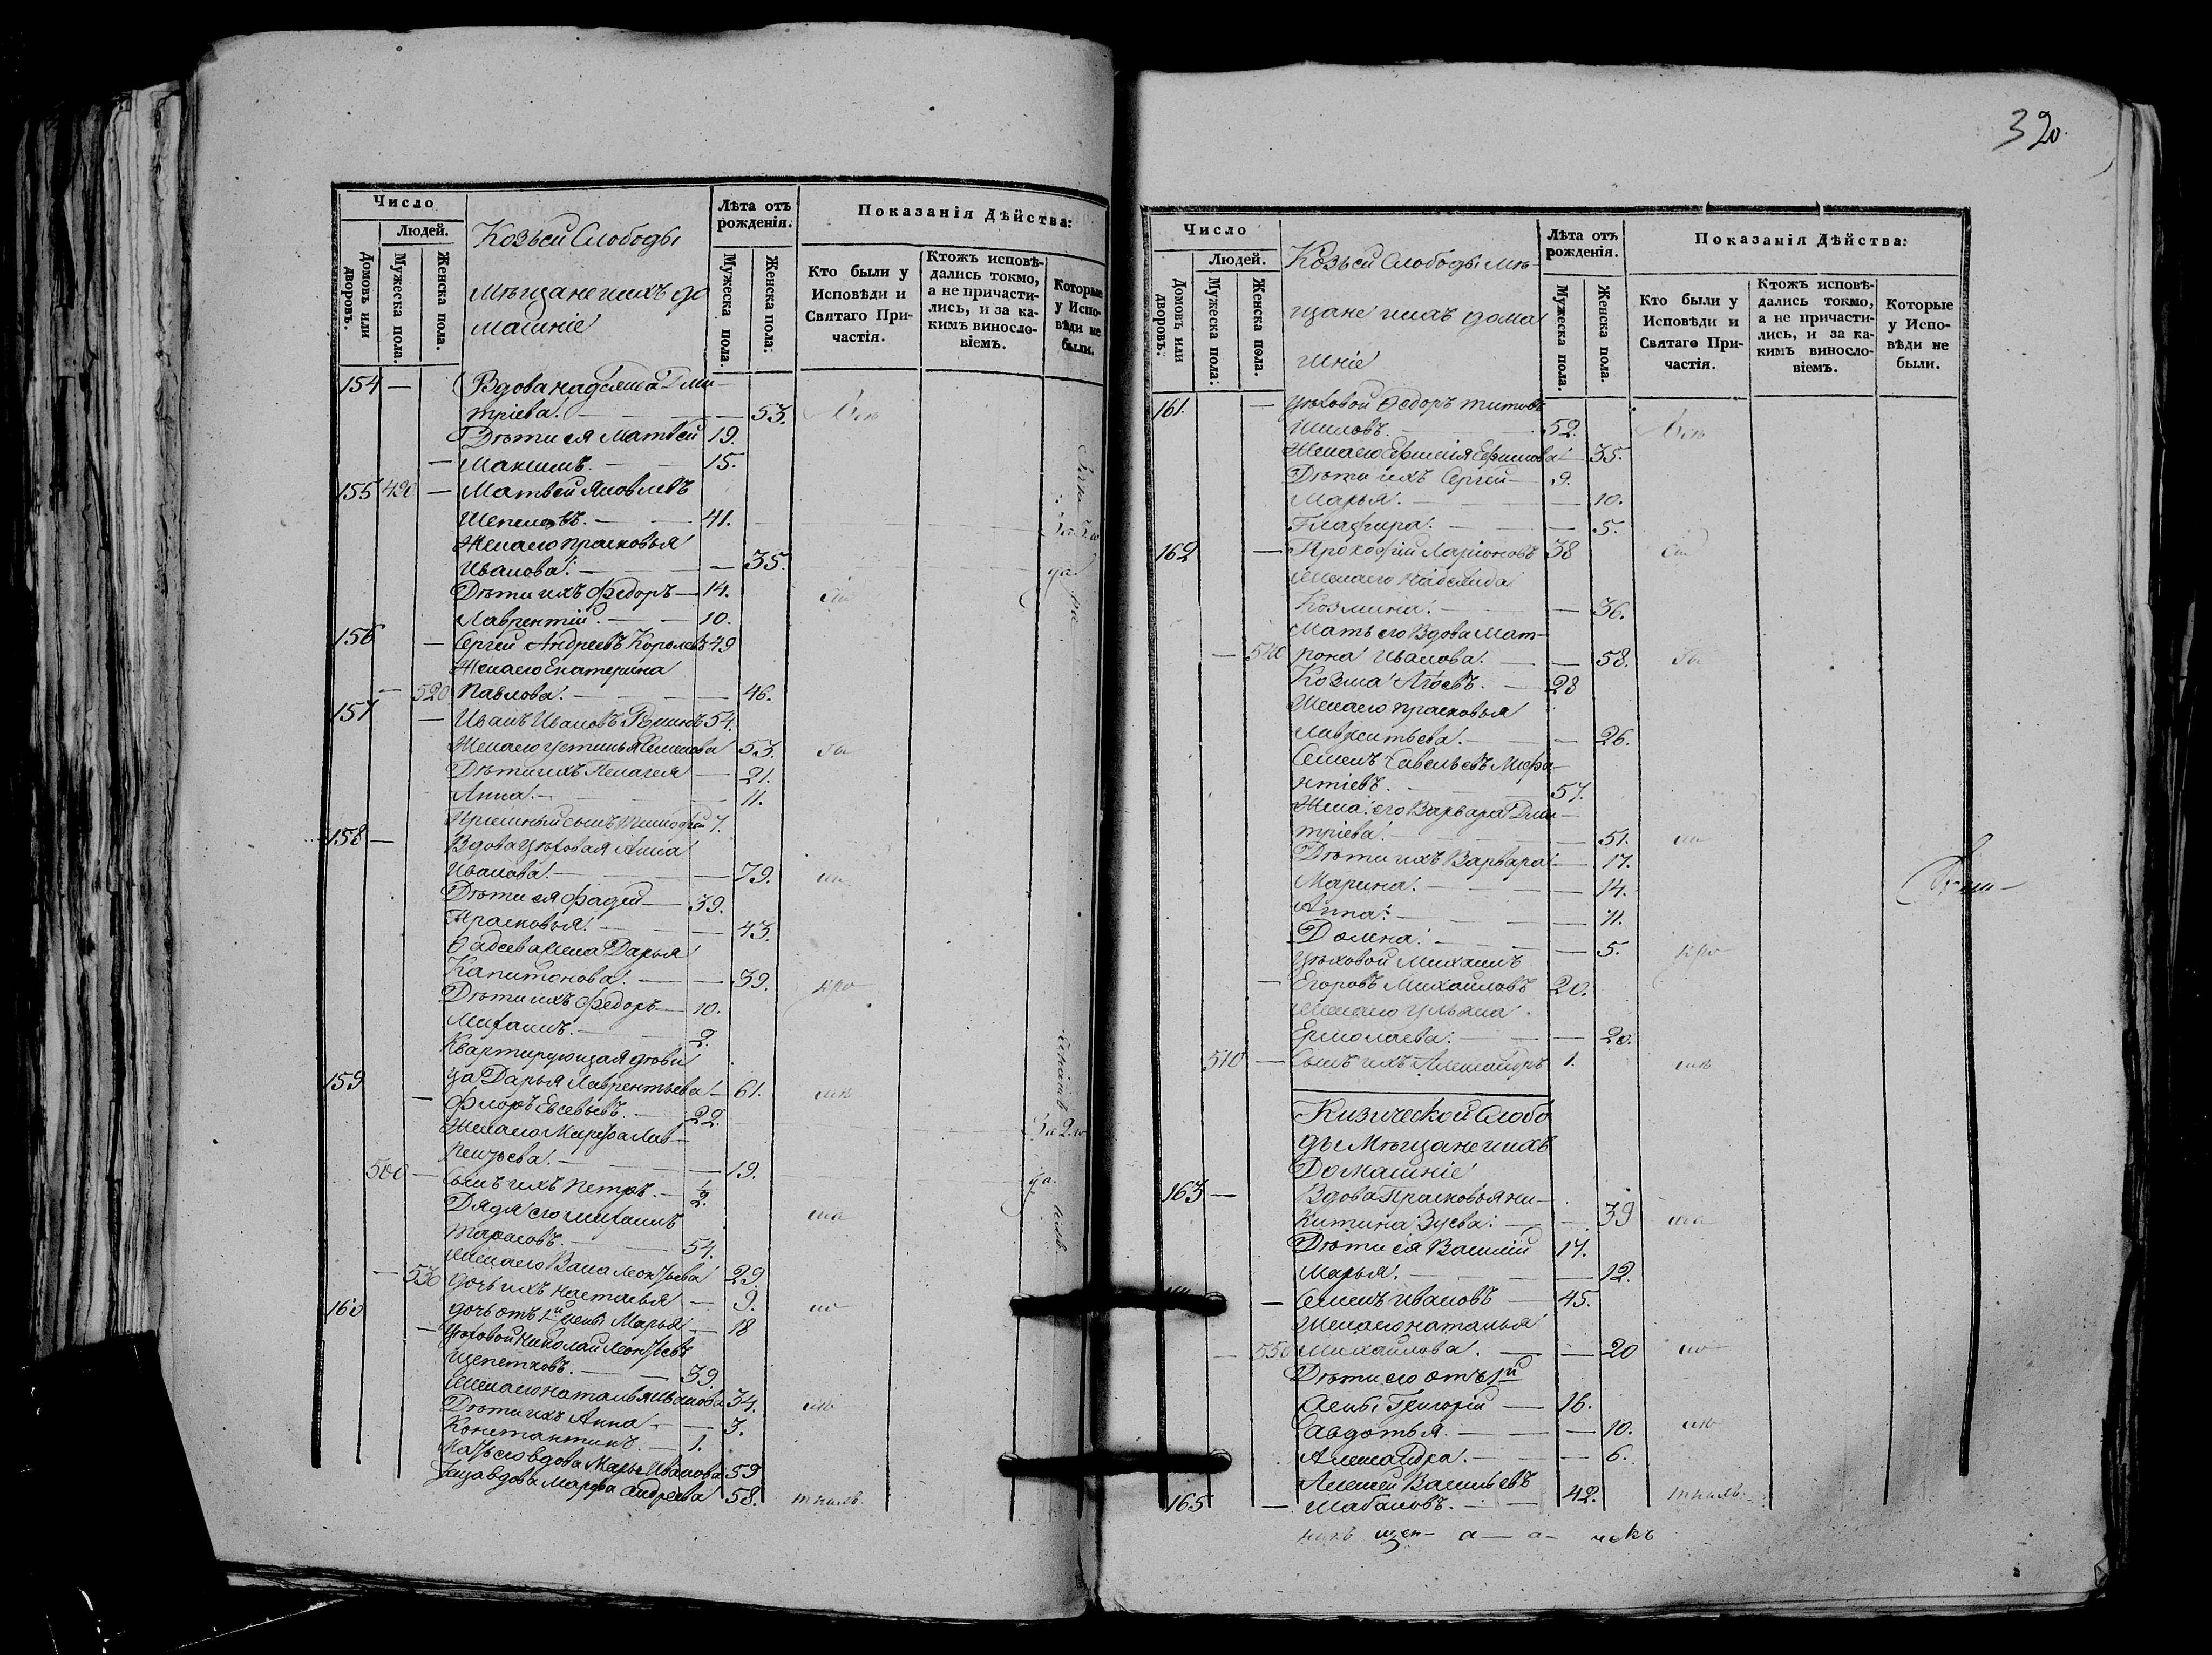 320.
Число
Людей.
Домовъ или дворовъ.
Мужеска пола.
Женска пола.
Козьей Слободы
Мѣщане ихъ до
машніе
Лѣта отъ рожденія.
Мужеска пола.
Женска пола:
Показанія Дѣйства:
Кто были у Исповѣди и Святаго Причастія.
Ктожъ исповѣдались токмо, а не причастились, и за какимъ винословіемъ.
Которые у Исповѣди не были.
154 — Вдова надежда Дми—
тріева. — 53.
Дѣти ея Матвей 19.
— Максимъ. — 15.
155 490 — Матвей Яковлевъ
41.
Жена его прасковья
Иванова. — 35.
Дѣти ихъ Федоръ — 14.
Лаврентій. — 10.
156 — Сергей Андреевъ Королевъ 49
Жена его Екатерина
— 520 Павлова. — 46.
157 — Иванъ Ивановъ 54.
Жена его устинья Семенова 53.
Дѣти ихъ Пелагея — 21.
Анна. — 11.
Пріемный сынъ Тимофей 7.
158 — Вдова цѣховая Анна
Иванова. — 79.
Дѣти ея Фадей — 39.
Прасковья. — 43.
Фадеева жена Дарья
Капитонова. — 39.
Дѣти ихъ Федоръ — 10.
Михаилъ. — 2.
Квартирующая дѣви
159 ца Дарья Лаврентьева — 61.
— Флоръ Евсевьевъ. — 22.
Жена его
19.
500 — Сынъ ихъ Петръ. — ½.
Дядя его Михаилъ
Тарасовъ. — 54.
Жена его Леонтьева 29.
— 530 дочь ихъ Настасья — 9.
160 дочь отъ 1й жены Марья — 18
— Цѣховой Николай Леонтьевъ
Щепетковъ. — 39.
Жена его наталья Иванова 34.
Дѣти ихъ Анна — 3.
Константинъ. — 1.
Мать его вдова Марья Иванова 59
вдова Марфа Андреева 58.
Число
Людей.
Домовъ или дворовъ.
Мужеска пола:
Женска пола.
Козьей Слободы Мѣ—
щане ихъ дома
шніе
Лѣта отъ рожденія.
Мужеска пола.
Женска пола.
Показанія Дѣйства:
Кто были у Исповѣди и Святаго Причастія.
Ктожъ исповѣдались токмо, а не причастились, и за какимъ винословіемъ.
Которые у Исповѣди не были.
161. — Цѣховой Федоръ титовъ
Шиловъ. — 52.
Жена его Ефимія Ефимова — 35.
Дѣти ихъ Сергей — 9.
Марья. — 10.
Глафира. — 5.
162 — Прокофій Ларіоновъ 38
Жена его Надежда
Козмина. — 36.
Мать его Вдова Мат—
— 540 рона Иванова. — 58.
Козма — 28
Жена его прасковья
26.
Семенъ Савельевъ
57.
Жена его Варвара Дми—
тріева. — 51.
Дѣти ихъ Варвара — 17.
Марина. — 14.
Анна. — 11.
Домна. — 5.
Цѣховой Михаилъ
— Егоровъ Михайловъ 20.
Жена его Ульяна
Ермолаева. — 20.
510 — Сынъ ихъ Александръ 1.
Кизической Слобо
ды Мѣщане ихъ
Домашніе
163 — Вдова Прасковья ни—
китина Зуева. — 39
Дѣти ея Василій 17.
Марья. — 12.
— Семенъ Ивановъ — 45.
Жена его наталья
— 550 Михайлова. — 20
Дѣти его отъ 1й
жены Григорій — 16.
Авдотья. — 10.
Александра. — 6.
Алексей Васильевъ
165 — Шабановъ. — 42.